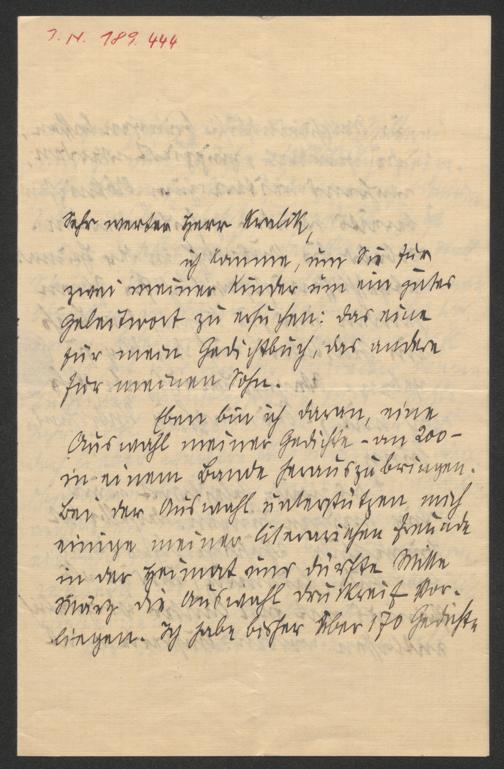 J. N. 189.444
Sehr werter Herr Kralik,
ich komme, um Sie für
zwei meiner Kinder um ein gutes
Geleitwort zu ersuchen: das eine
für mein Gedichtbuch, das andere
für meinen Sohn.
Eben bin ich daran, eine
Auswahl meiner Gedichte - an 200 -
in einem Bande herauszubringen.
Bei der Auswahl unterstützen mich
einige meiner literarischen Freunde
in der Heimat und dürfte Mitte
März die Auswahl druckreif vor-
liegen. Ich habe bisher über 170 Gedichte